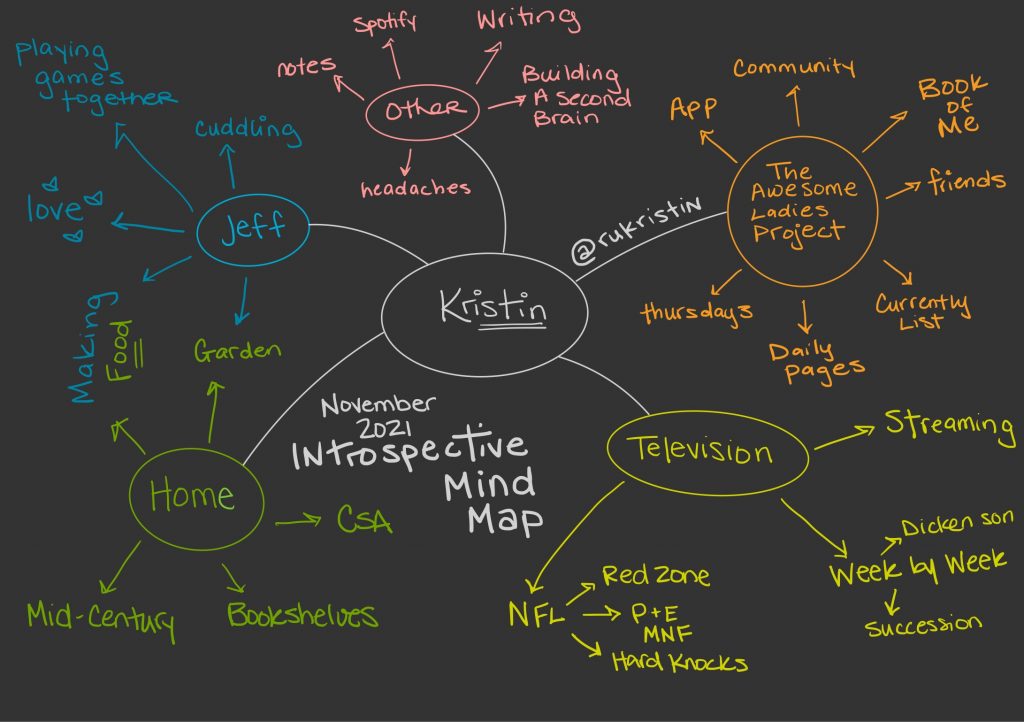 Spotify
Writing
notes
Other
Building
A Second
Brain
headaches
Playing
games
together
cuddling
love
Jeff
Making
Food
Garden
Community
App
Book
of
Me
The
Awesome
Ladies
Project
friends
thursdays
Daily
pages
Currently
List
@rukristin
Kristin
November
2021
Introspective
Mind
Map
Home
CSA
Mid-Century
Bookshelves
Television
Streaming
Dickenson
Week by Week
Succession
NFL
Red Zone
P+E
MNF
Hard Knocks